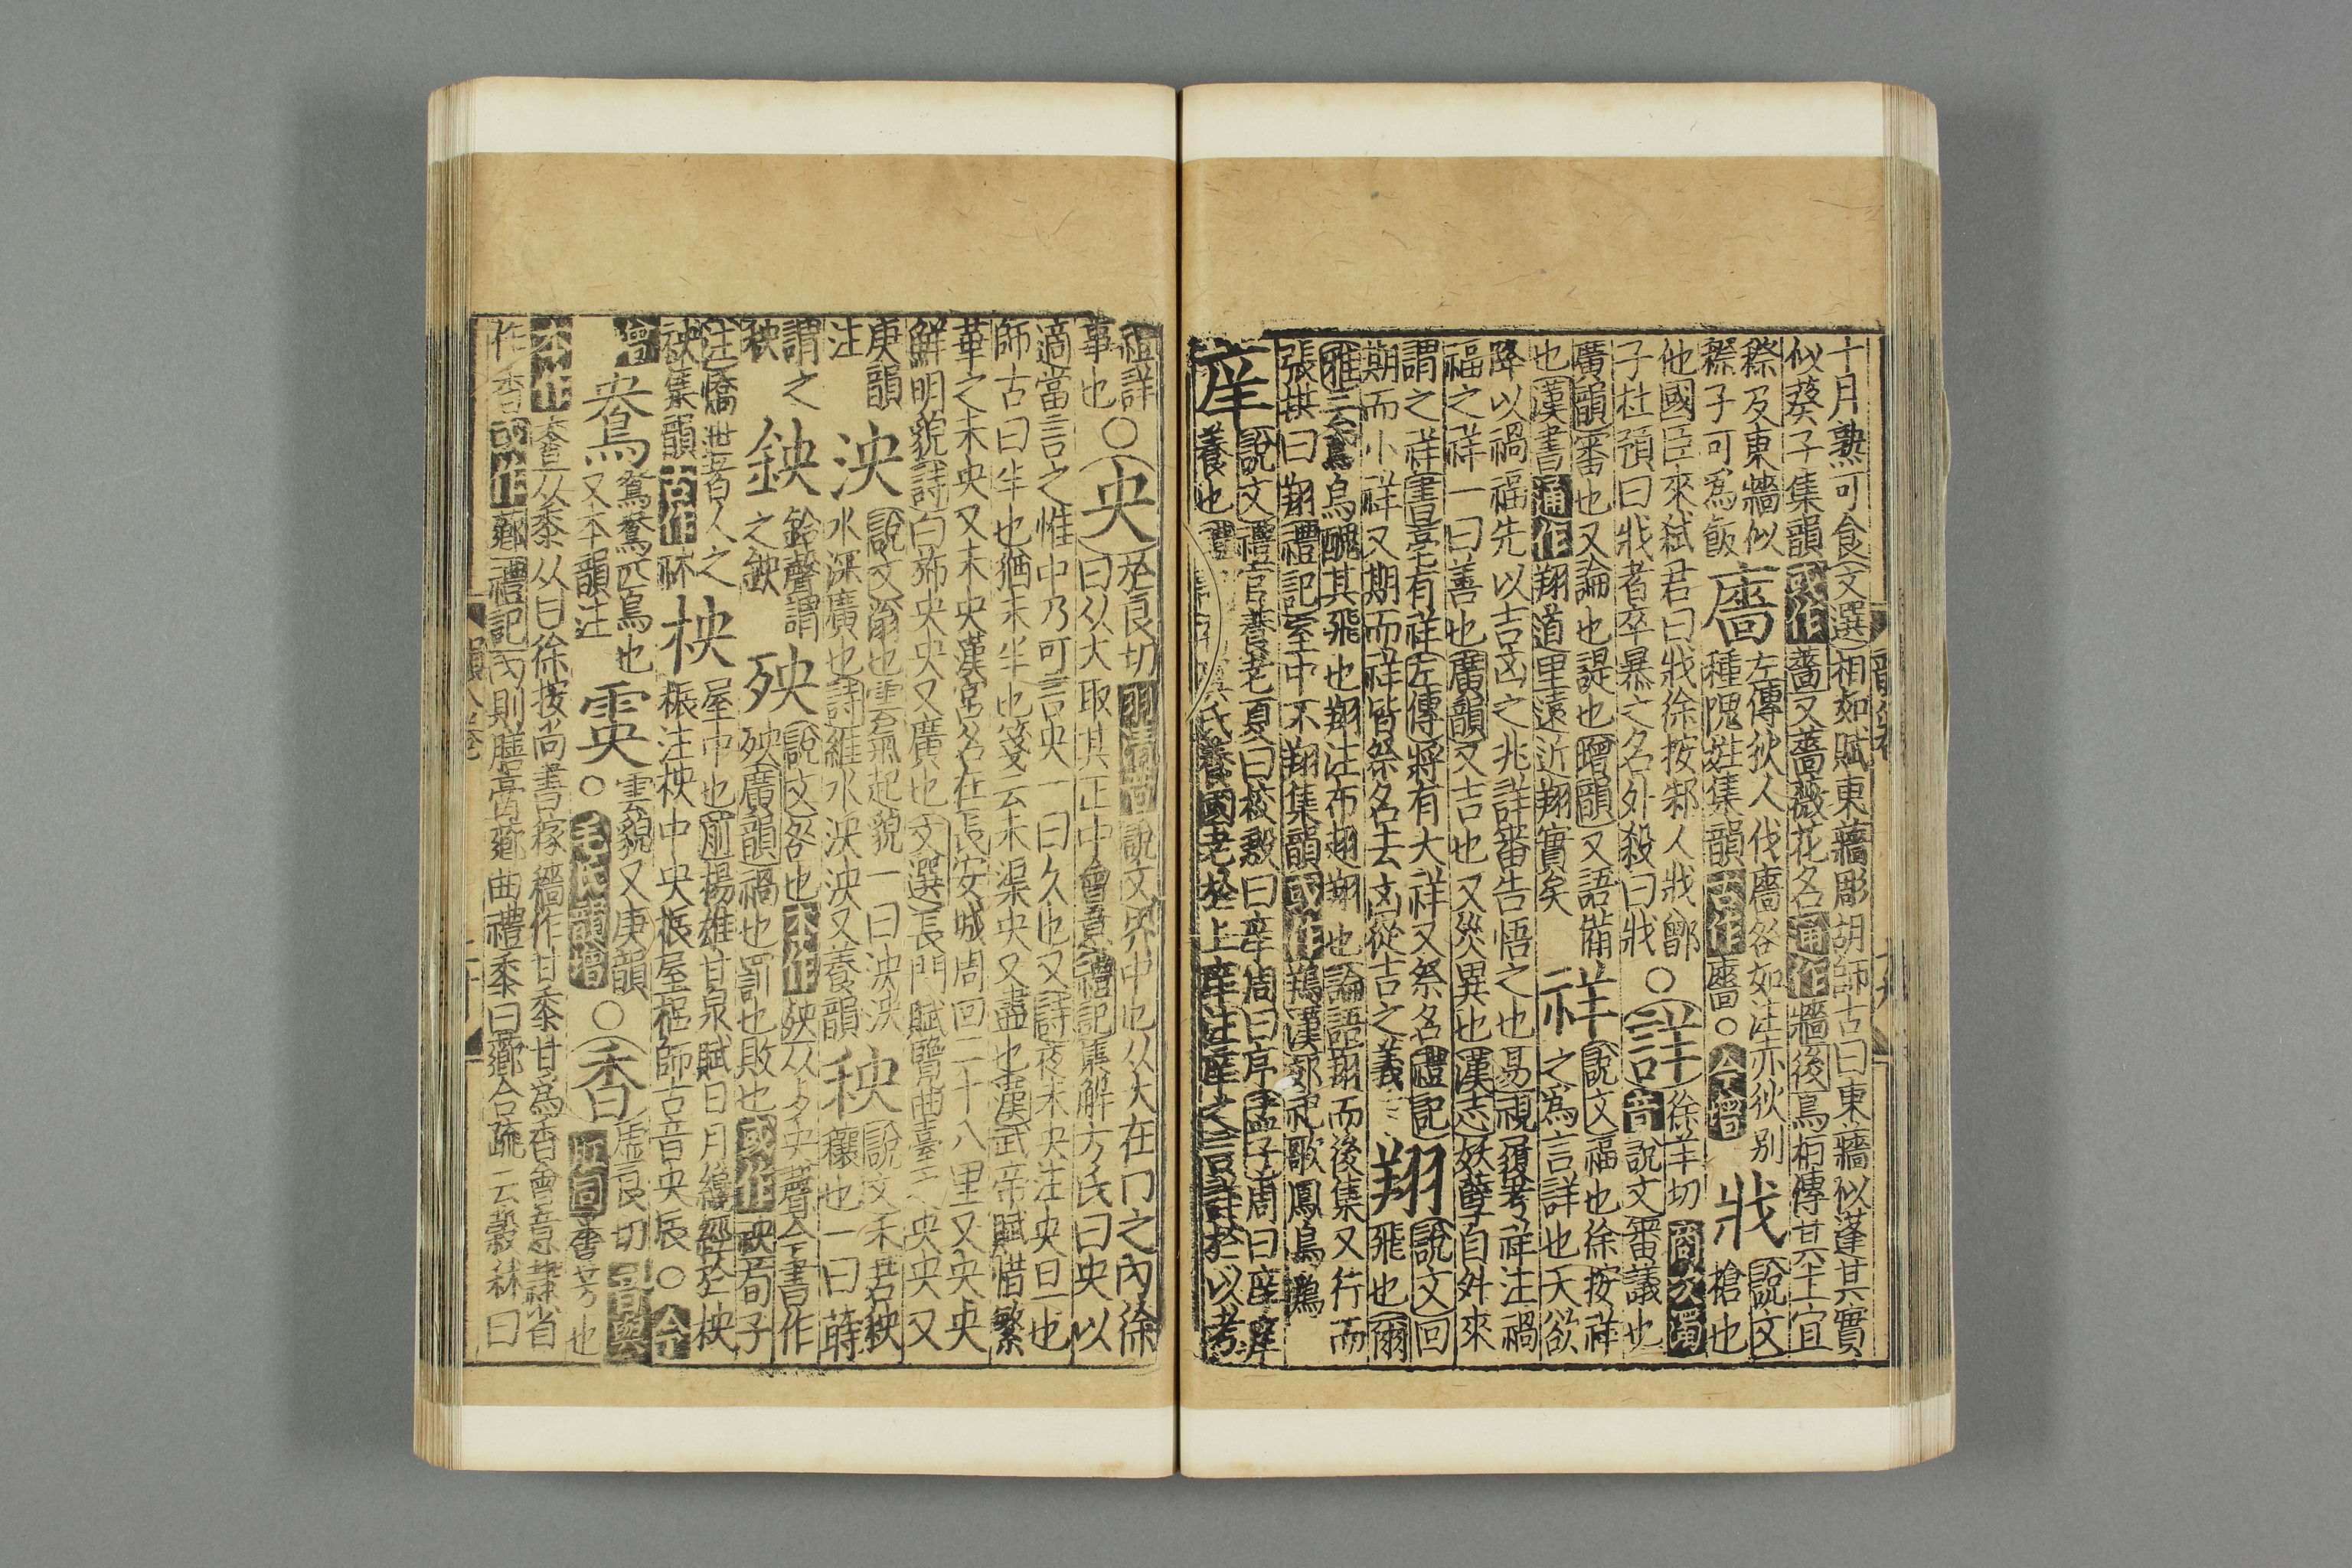 十月熟可食文選相如賦東蘠彫胡師古曰東蘠似蓬其實
似葵子集韻或作薔又薔薇花名通作牆後烏桓傳其土宜
穄及東牆似
穄子可為飯
廧
左傳狄人伐廧咎如注赤狄别
種隗姓集韻古作廧○今增
戕
說文
槍也
他國臣來弑君曰戕徐按邾人戕鄫
子杜預曰戕者卒暴之名外殺曰戕
○詳
徐羊切商次濁
音說文審議也
廣韻審也又論也諟也增韻又語備
也漢書通作翔翔道里遠近翔實矣
祥
說文福也徐按祥
之為言詳也天欲
降以禍福先以吉凶之兆詳審告悟之也易視履考祥注禍
福之祥一曰善也廣韻又吉也又災異也漢志妖孽自外來
謂之祥書亳有祥左傳將有大祥又祭名禮記
期而小祥又期而祥皆祭名去凶從吉之義
翔
說文回
飛也爾
雅鳥醜其飛也翔注布翅翔也論語翔而後集又行而
張拱曰翔禮記室中不翔集韻或作鴹漢郊祀歌鳳鳥鴹
庠
說文禮官養老夏曰校殷曰庠周曰序孟子周曰庠庠
養也氏養國老於上庠注庠之言詳於以考
禮詳
事也
○央
於良切羽清音說文央中也从大在冂之內徐
曰从大取其正中會意禮記集解方氏曰央以
適當言之惟中乃可言央一曰久也又詩夜未央注央旦也
師古曰半也猶未半也箋云未渠央又盡也漢武帝賦惜繁
華之未央又未央漢宮名在長安城周回二十八里又央央
鮮明貌詩白斾央央又廣也文選長門賦覽曲臺之央央又
庚韻
注
泱
說文滃也雲氣起貌一曰泱泱
水深廣也詩維水泱泱又養韻
秧
說文禾若秧
穰也一曰蒔
謂之
秧
鉠
鈴聲謂
之鉠
殃
說文咎也本作殃从歹央聲今書作
殃廣韻禍也罰也敗也或作䄃荀子
注憍泄者人之
䄃集韻古作
柍
屋中也前揚雄甘泉賦日月纔經於柍
桭注柍中央桭屋梠師古音央辰○今
增
鴦
鴛鴦匹鳥也
又本韻注
霙
雲貌又庚韻
○毛氏韻增
○香
虛良切音與
同芳也
本作从黍从曰徐按尚書稼穡作甘黍甘為香會意隸省
作香或作薌禮記內則膳膏薌曲禮黍曰薌合疏云穀秫曰